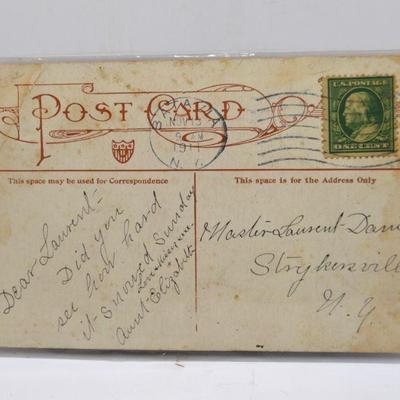 POST CARD
BUFFALO
NOV 13
9 PM
1911
N.Y.
U.S. POSTAGE
ONE CENT
This space may be used for Correspondence
This space is for the Address Only
Dear Laurent-
Did you
see how hard
it snowed Sunday
Aunt Elizabeth
Master Laurent
Strykersville
N.Y.